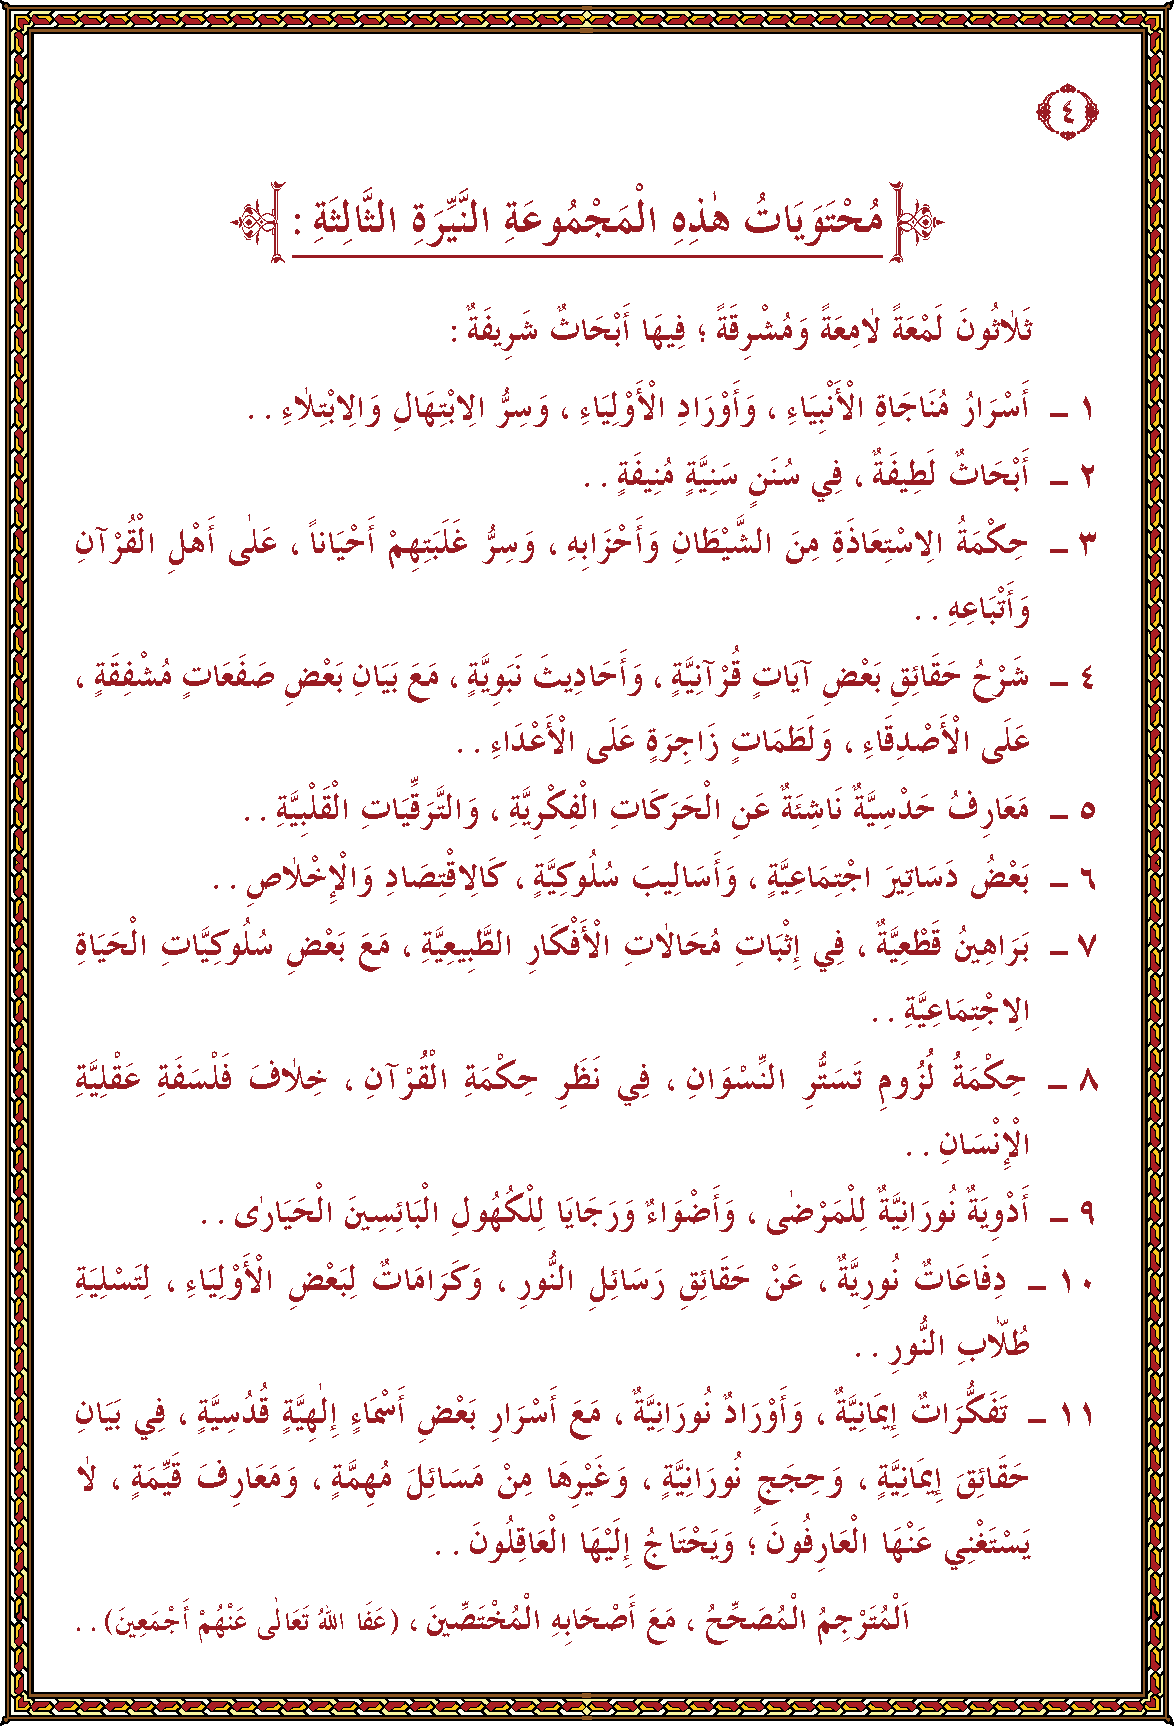 ٤
مُحْتَوَيَاتُ هٰذِهِ الْمَجْمُوعَةِ النَّيِّرَةِ الثَّالِثَةِ :
ثَلَاثُونَ لَمْعَةً لَامِعَةً وَمُشْرِقَةً ؛ فِيهَا أَبْحَاثٌ شَرِيفَةٌ :
١ ـ أَسْرَارُ مُنَاجَاةِ الْأَنْبِيَاءِ ، وَأَوْرَادِ الْأَوْلِيَاءِ ، وَسِرُّ الِابْتِهَالِ وَالِابْتِلَاءِ . .
٢ ـ أَبْحَاثٌ لَطِيفَةٌ ، فِي سُنَنٍ سَنِيَّةٍ مُنِيفَةٍ . .
٣ ـ حِكْمَةُ الِاسْتِعَاذَةِ مِنَ الشَّيْطَانِ وَأَحْزَابِهِ ، وَسِرُّ غَلَبَتِهِمْ أَحْيَاناً ، عَلٰى أَهْلِ الْقُرْآنِ
وَأَتْبَاعِهِ . .
٤ ـ شَرْحُ حَقَائِقِ بَعْضِ آيَاتٍ قُرْآنِيَّةٍ ، وَأَحَادِيثَ نَبَوِيَّةٍ ، مَعَ بَيَانِ بَعْضِ صَفَعَاتٍ مُشْفِقَةٍ ،
عَلَى الْأَصْدِقَاءِ ، وَلَطَمَاتٍ زَاجِرَةٍ عَلَى الْأَعْدَاءِ . .
٥ ـ مَعَارِفُ حَدْسِيَّةٌ نَاشِئَةٌ عَنِ الْحَرَكَاتِ الْفِكْرِيَّةِ ، وَالتَّرَقِّيَاتِ الْقَلْبِيَّةِ . .
٦ ـ بَعْضُ دَسَاتِيرَ اجْتِمَاعِيَّةٍ ، وَأَسَالِيبَ سُلُوكِيَّةٍ ، كَالِاقْتِصَادِ وَالْإِخْلَاصِ . .
٧ ـ بَرَاهِينُ قَطْعِيَّةٌ ، فِي إِثْبَاتِ مُحَالَاتِ الْأَفْكَارِ الطَّبِيعِيَّةِ ، مَعَ بَعْضِ سُلُوكِيَّاتِ الْحَيَاةِ
الِاجْتِمَاعِيَّةِ . .
٨ ـ حِكْمَةُ لُزُومِ تَسَتُّرِ النِّسْوَانِ ، فِي نَظَرِ حِكْمَةِ الْقُرْآنِ ، خِلَافَ فَلْسَفَةِ عَقْلِيَّةِ
الْإِنْسَانِ . .
٩ ـ أَدْوِيَةٌ نُورَانِيَّةٌ لِلْمَرْضٰى ، وَأَضْوَاءٌ وَرَجَايَا لِلْكُهُولِ الْبَائِسِينَ الْحَيَارٰى . .
١٠ ـ دِفَاعَاتٌ نُورِيَّةٌ ، عَنْ حَقَائِقِ رَسَائِلِ النُّورِ ، وَكَرَامَاتٌ لِبَعْضِ الْأَوْلِيَاءِ ، لِتَسْلِيَةِ
طُلَّابِ النُّورِ . .
١١ ـ تَفَكُّرَاتٌ إِيمَانِيَّةٌ ، وَأَوْرَادٌ نُورَانِيَّةٌ ، مَعَ أَسْرَارِ بَعْضِ أَسْمَاءٍ إِلٰهِيَّةٍ قُدُسِيَّةٍ ، فِي بَيَانِ
حَقَائِقَ إِيمَانِيَّةٍ ، وَحِجَجٍ نُورَانِيَّةٍ ، وَغَيْرِهَا مِنْ مَسَائِلَ مُهِمَّةٍ ، وَمَعَارِفَ قَيِّمَةٍ ، لَا
يَسْتَغْنِي عَنْهَا الْعَارِفُونَ ؛ وَيَحْتَاجُ إِلَيْهَا الْعَاقِلُونَ . .
اَلْمُتَرْجِمُ الْمُصَحِّحُ ، مَعَ أَصْحَابِهِ الْمُخْتَصِّينَ ، (عَفَا اللهُ تَعَالٰى عَنْهُمْ أَجْمَعِينَ) . .